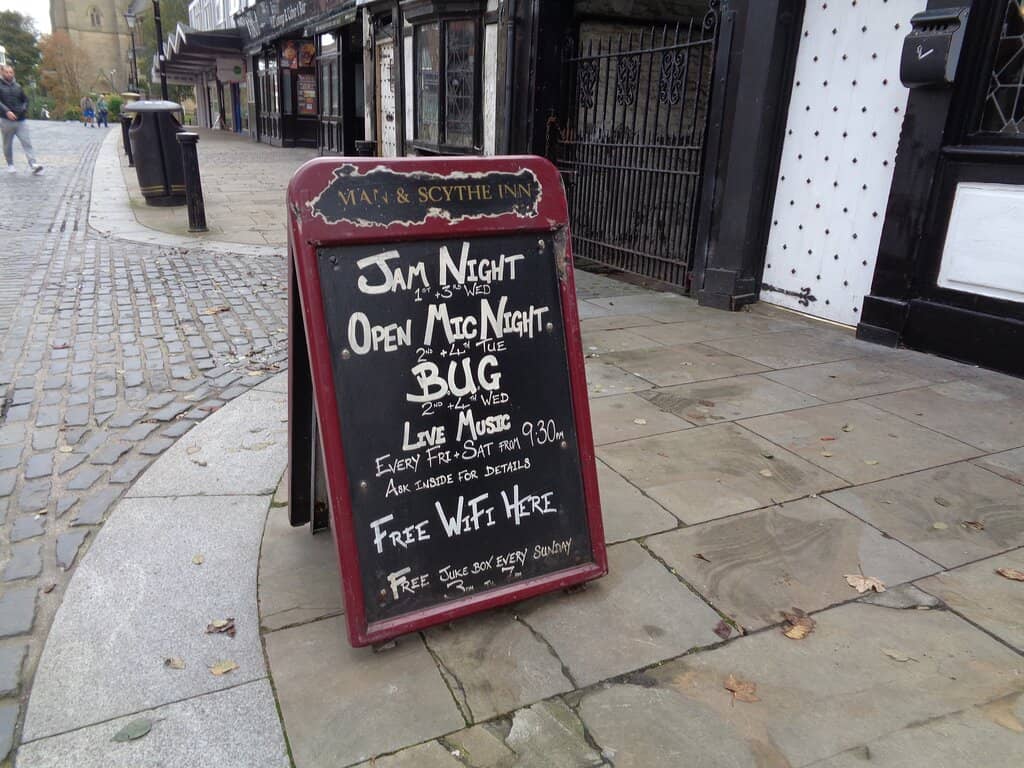 MAN & SCYTHE INN
JAM NIGHT
1ST + 3RD WED
OPEN MIC NIGHT
2ND + 4TH TUE
BUG
2ND + 4TH WED
LIVE MUSIC
EVERY FRI + SAT FROM 9:30PM
ASK INSIDE FOR DETAILS
FREE WIFI HERE
FREE JUKE BOX EVERY SUNDAY
3PM TO 7PM